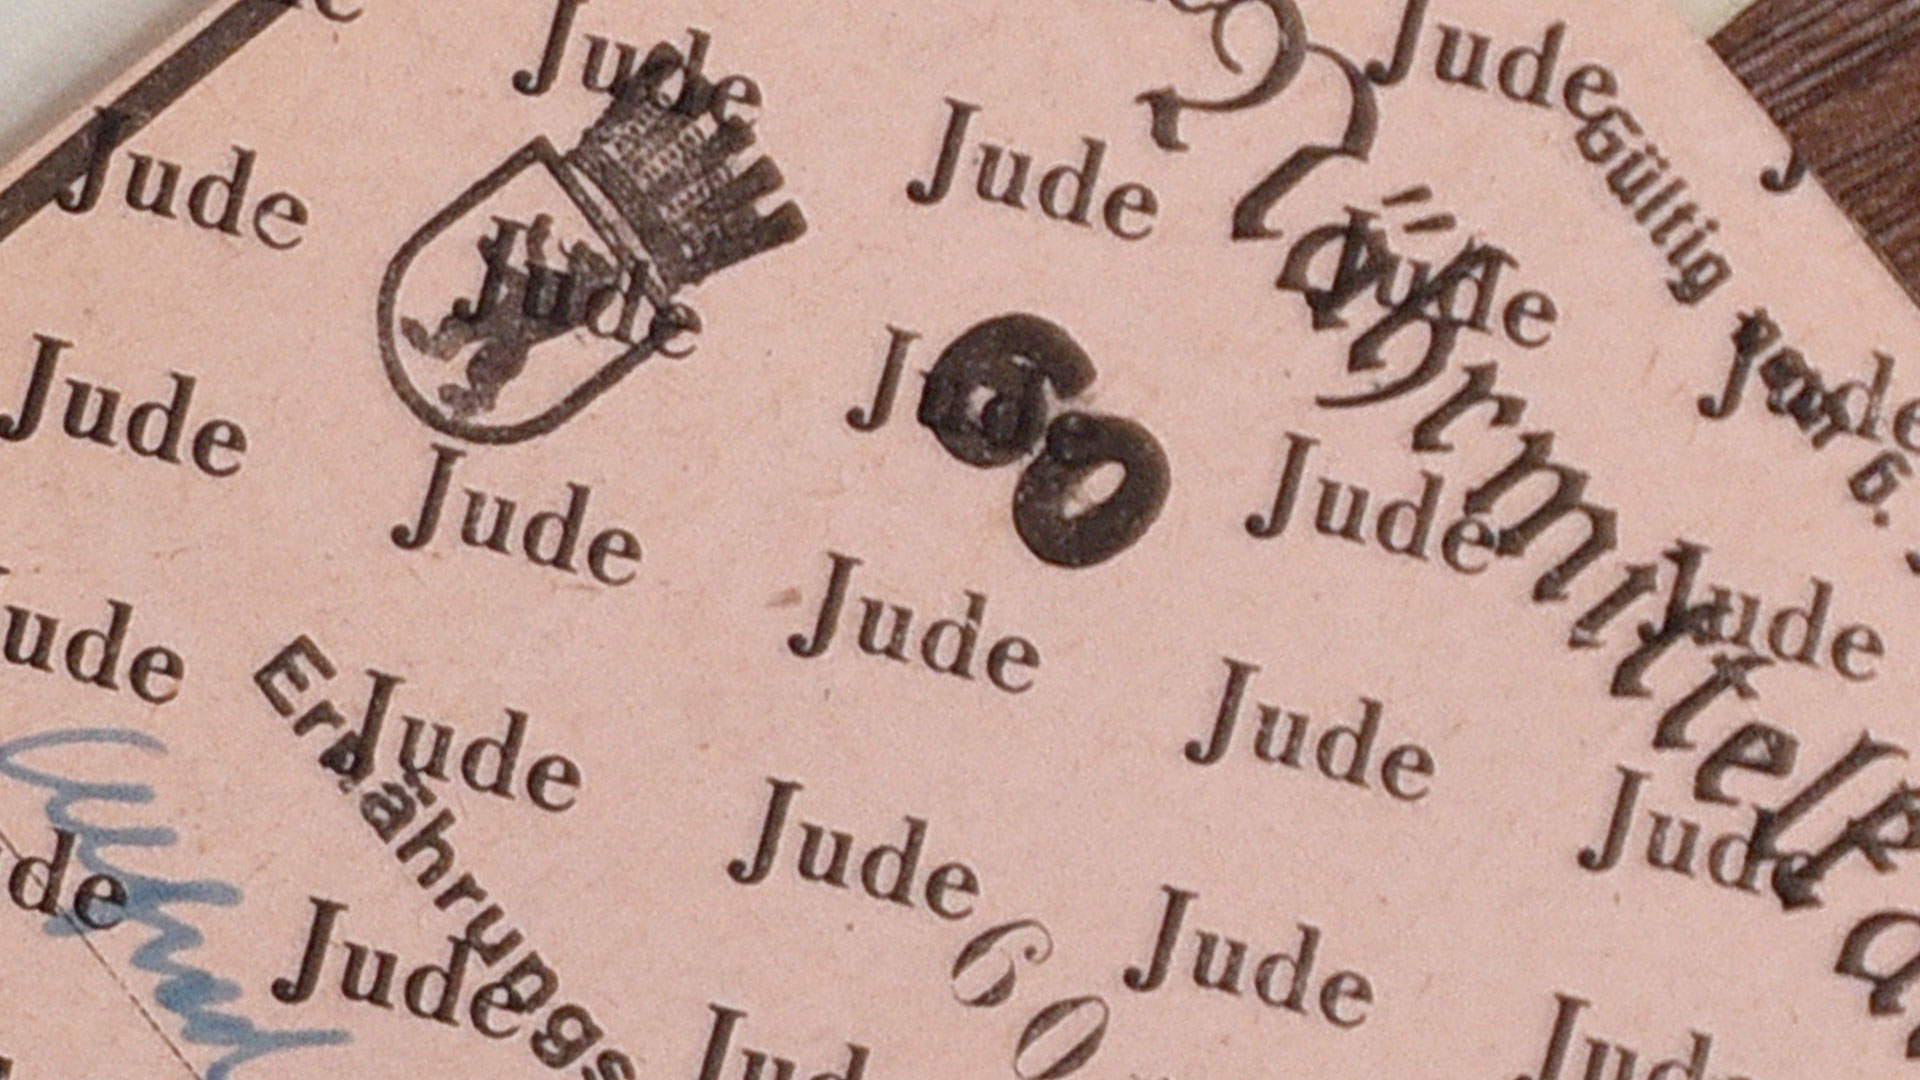 Jude
Jude
Jude
Jude
Jude
Jude
Jude
Gültig vom 6.
Jude
Jude
Jude
60
Jude
Jude
Jude
Jude
Jude
Jude
Jude
Jude
Jude
Jude
60
Jude
Jude
Ernährungs